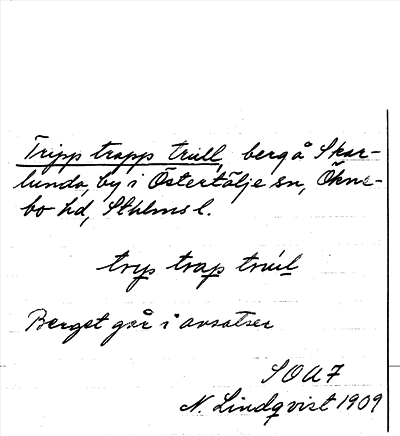 Tripp trapp trull, berg å Skar-
lunda, by i Östertälje sn, Ökne-
bo hd, Sthlms l.
tryp trap trul
Berget går i avsatser
SOU 7
N. Lindqvist 1909